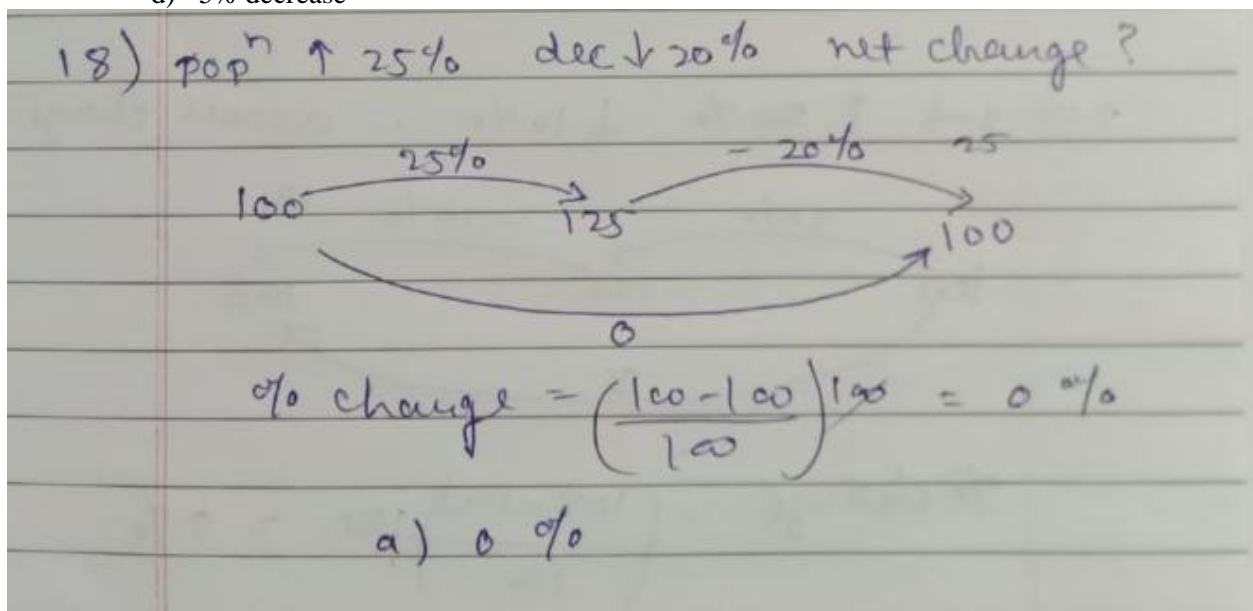 d) 5% decrease
18) popⁿ ↑ 25% dec ↓ 20% net change ?
25% - 20% 25
100 125 100
0
% change = (100-100/100)100 = 0 %
a) 0 %